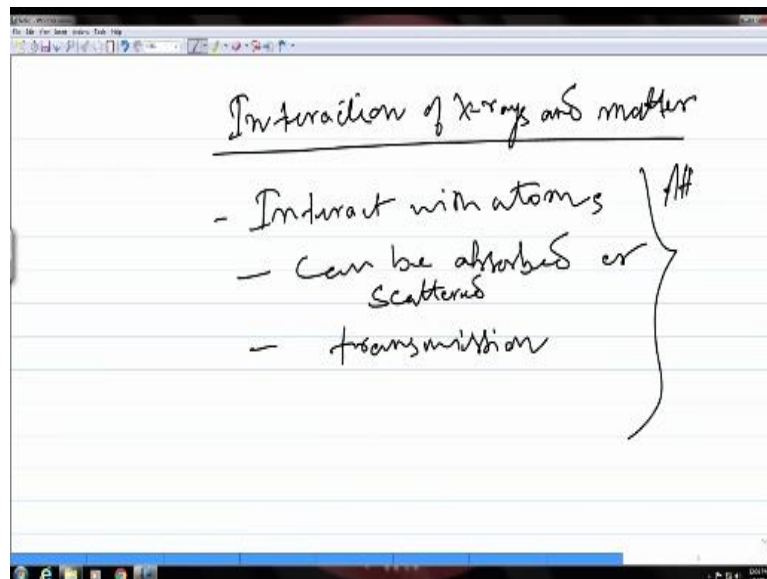 Interaction of X-rays and matter
- Interact with atoms
- Can be absorbed or
scattered
- transmission
Att